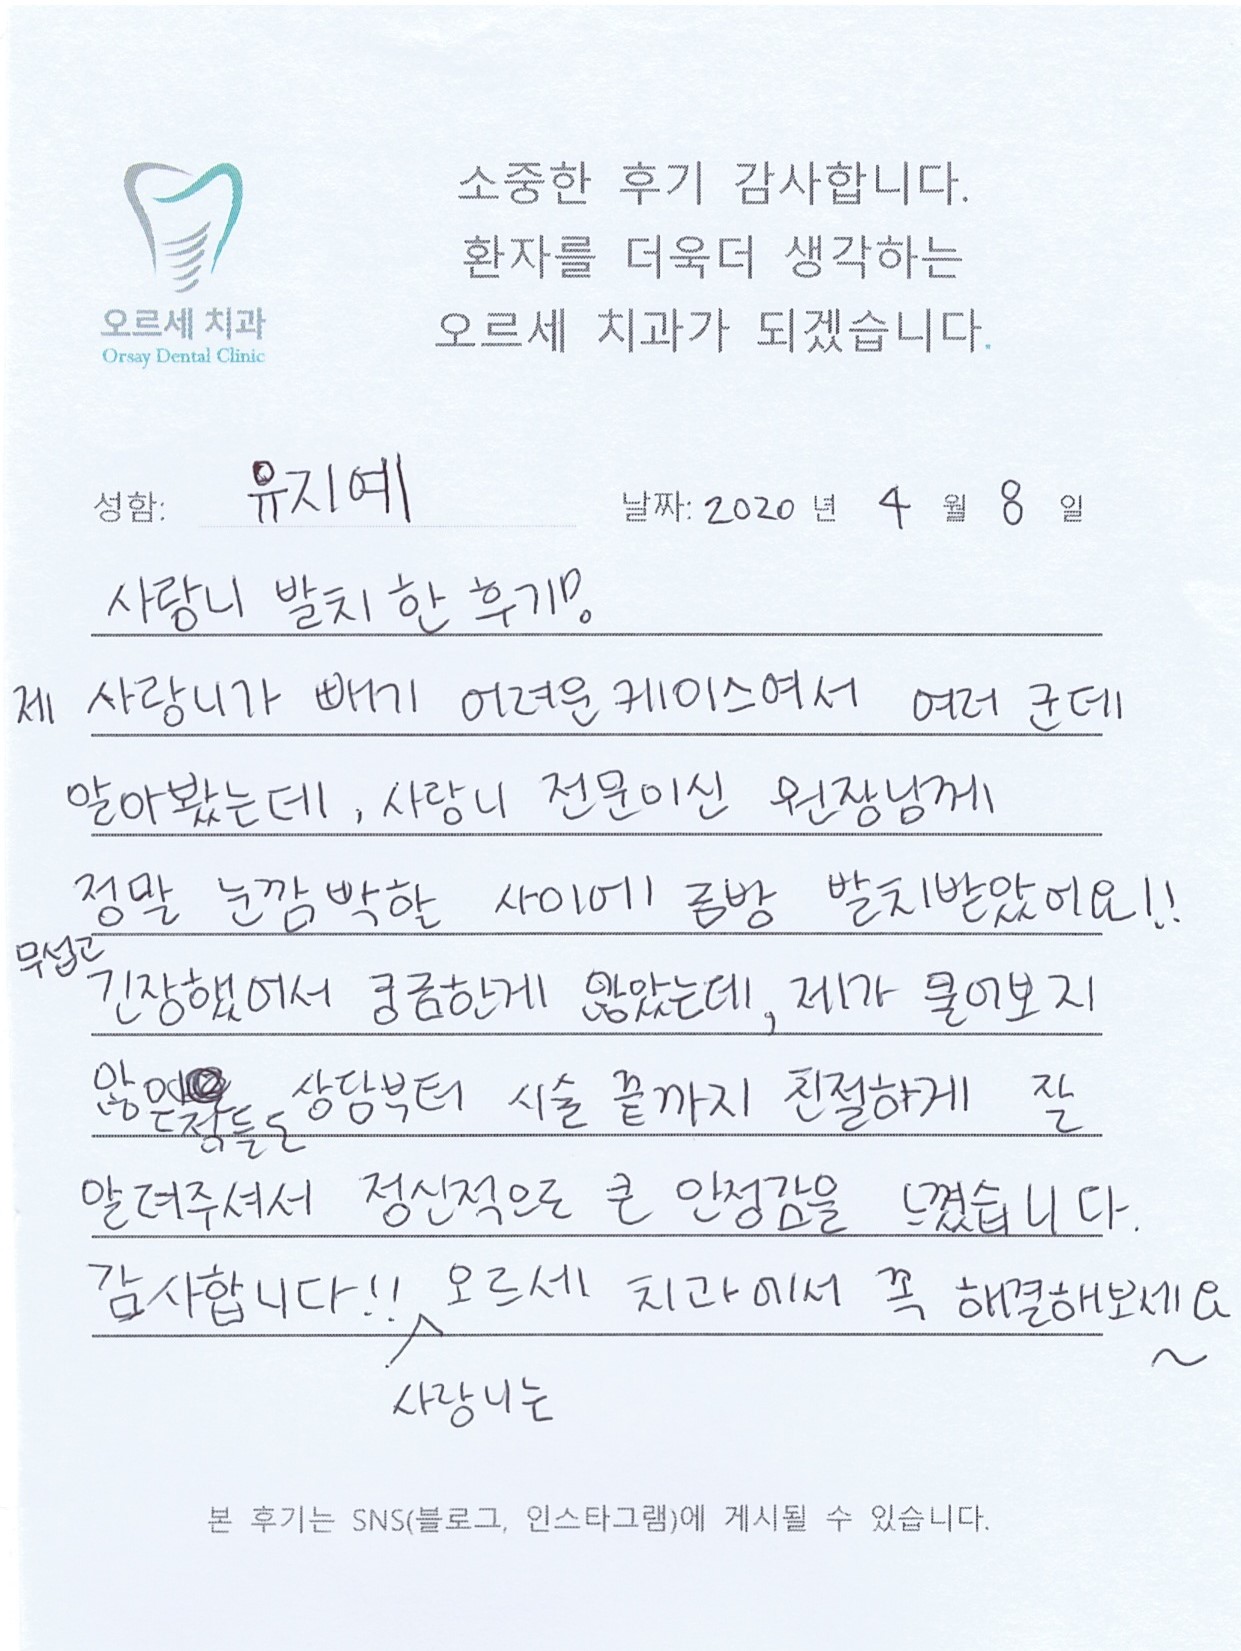 소중한 후기 감사합니다.
환자를 더욱더 생각하는
오르세 치과가 되겠습니다.
오르세 치과
Orsay Dental Clinic
성함: 유지예 날짜: 2020 년 4 월 8 일
사랑니 발치 한 후기!
제 사랑니가 빼기 어려운 케이스여서 여러 군데
알아봤는데, 사랑니 전문이신 원장님께
정말 눈깜박할 사이에 금방 발치받았어요!!
무섭고 긴장했어서 궁금한게 많았는데, 제가 물어보지
않은 것들도 상담부터 시술 끝까지 친절하게 잘
알려주셔서 정신적으로 큰 안정감을 느꼈습니다.
감사합니다!! 오르세 치과에서 꼭 해결해보세요~
사랑니는
본 후기는 SNS(블로그, 인스타그램)에 게시될 수 있습니다.